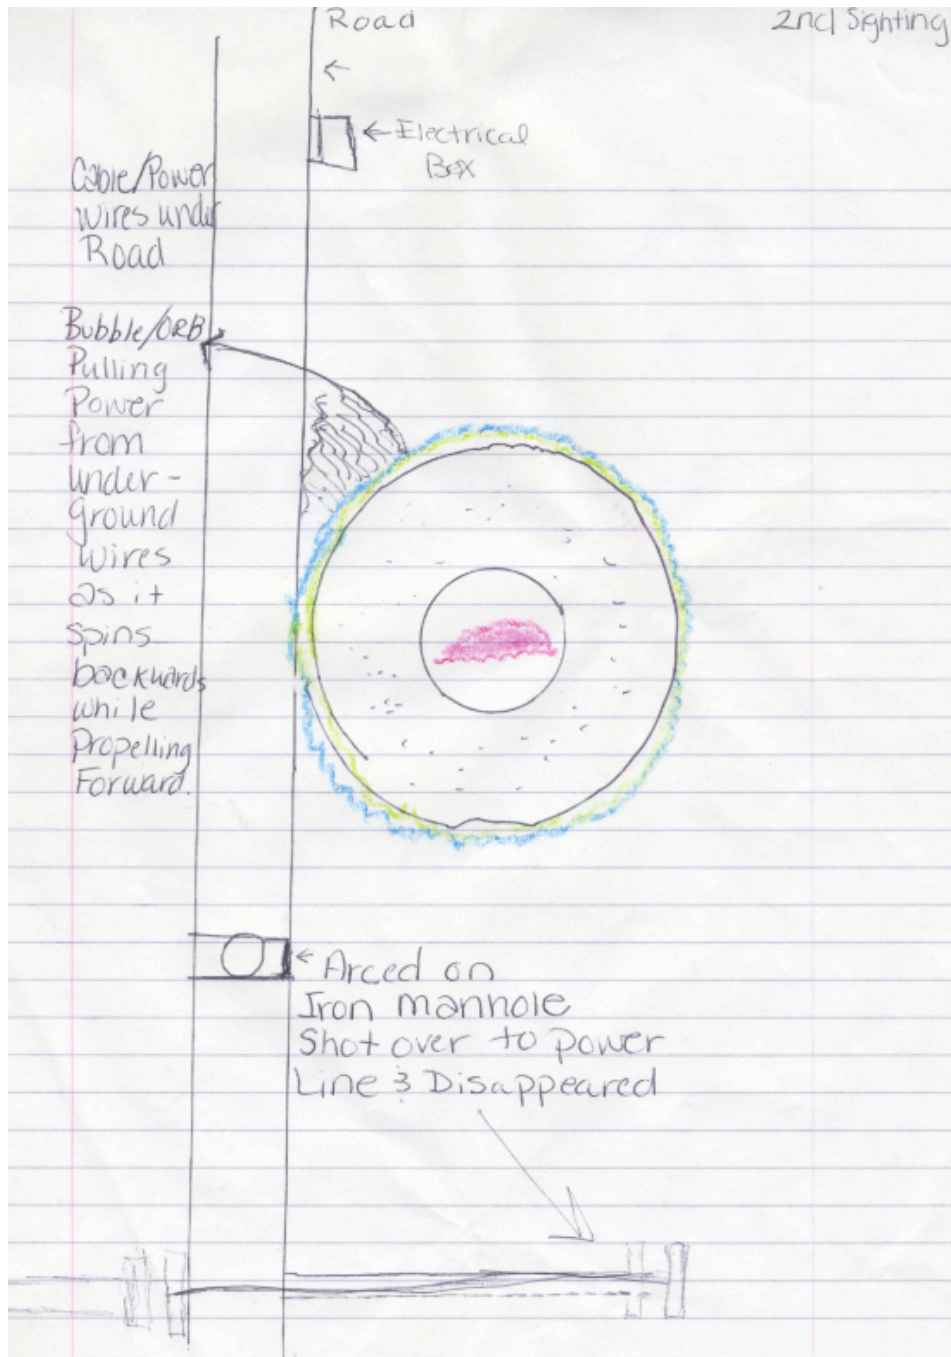 Road
2nd Sighting
←
← Electrical
Box
Cable/Power
wires under
Road
Bubble/ORB
Pulling
Power
from
under-
ground
wires
as it
spins
backwards
while
Propelling
Forward.
← Arced on
Iron manhole
Shot over to power
Line & Disappeared